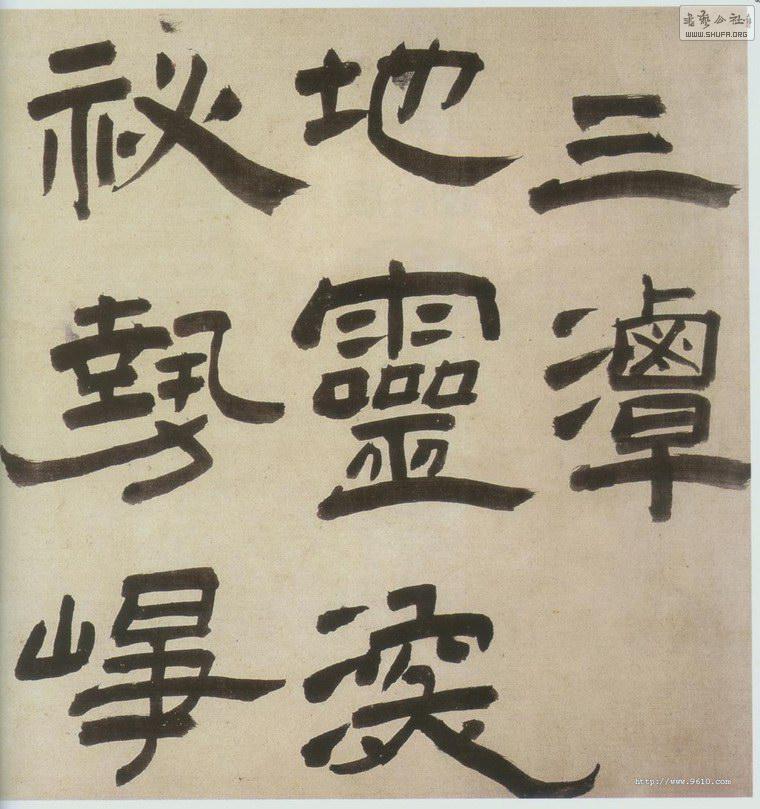 三潭
地靈渙
祕勢崢
書藝公社
WWW.SHUFA.ORG
http://www.9610.com